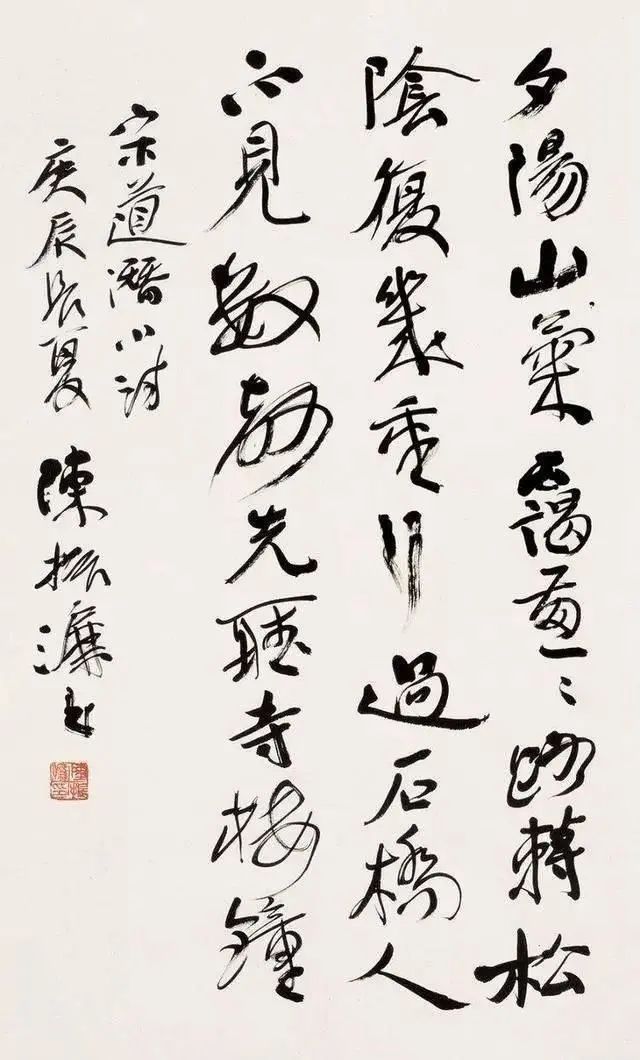 夕陽山氣靄路轉松
陰復幾重行過石橋人
不見數聲先聽寺樓鐘
宋道潛小詩
庚辰長夏 陳振濂書